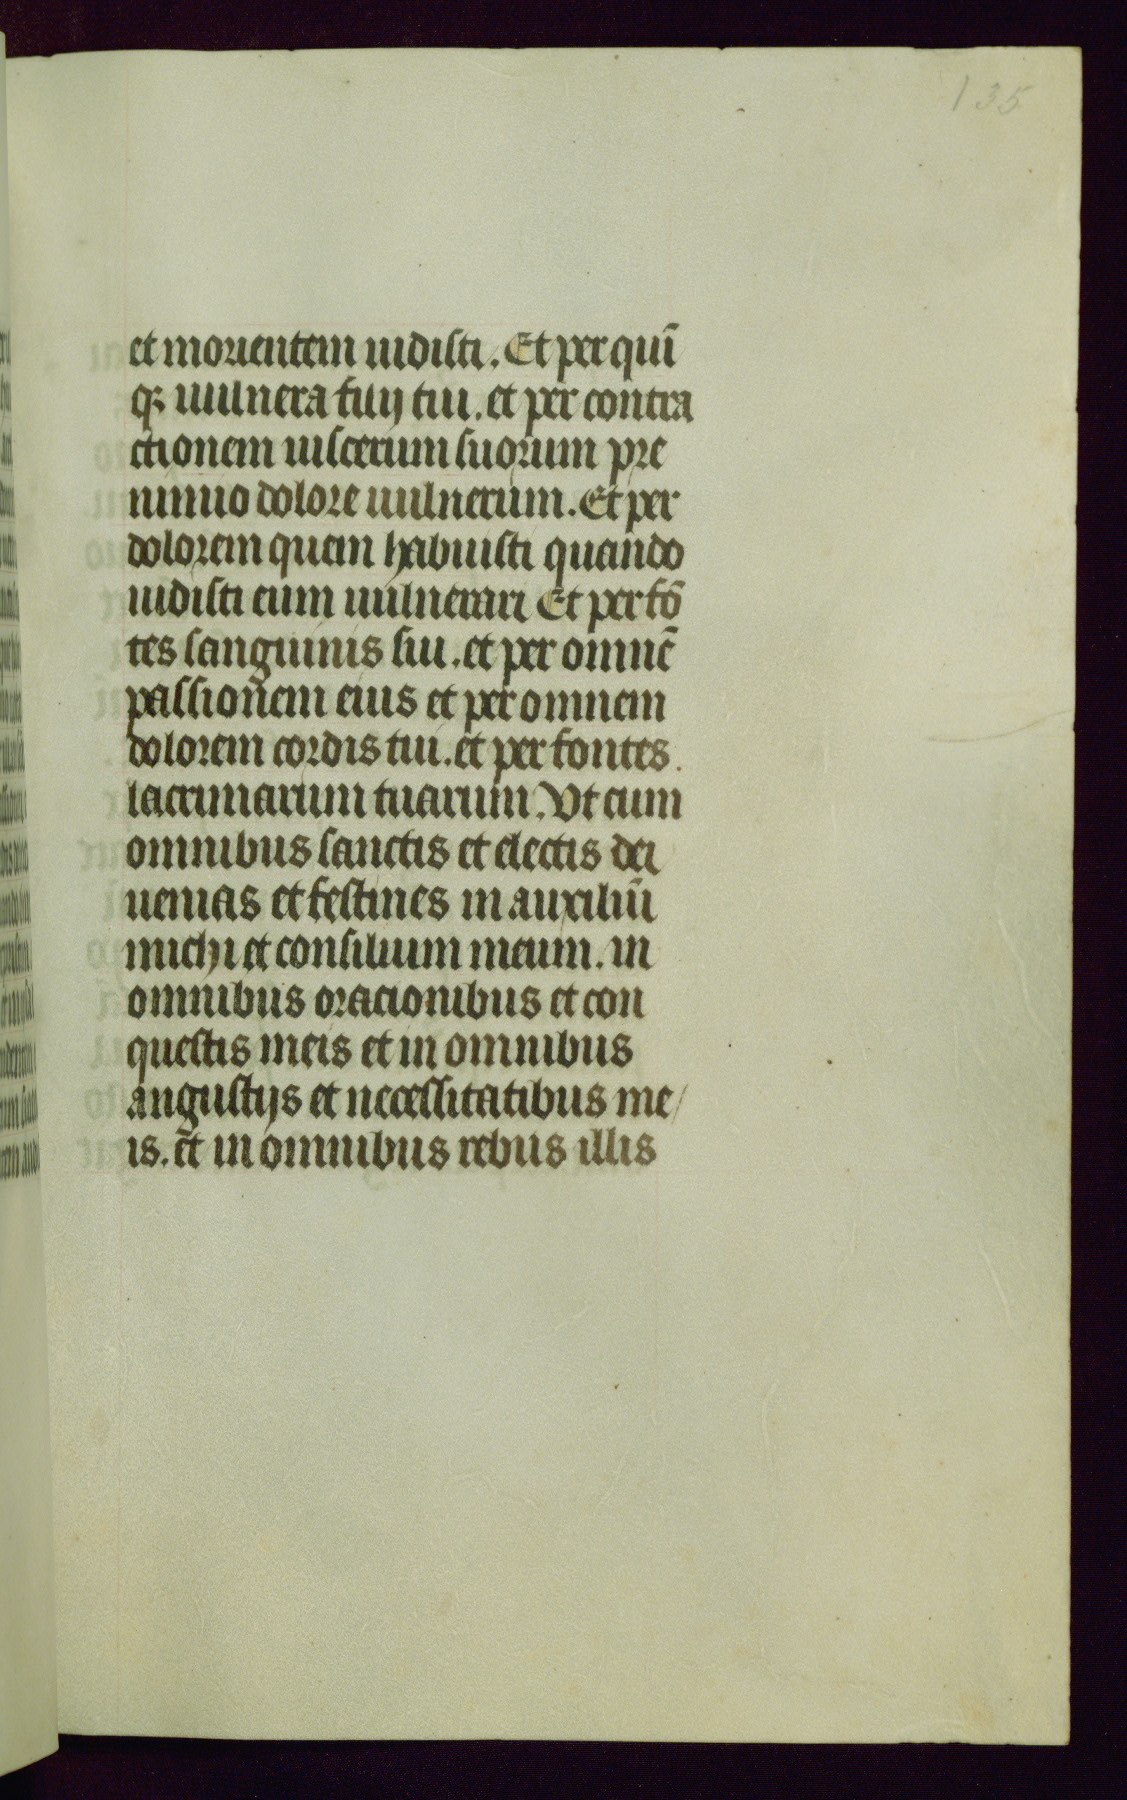 135
et morientem uidisti. Et per quī
qꝫ uulnera filij tui. et per contra
ctionem uiscerum suorum pre
nimio dolore uulnerum. Et per
dolorem quem habuisti quando
uidisti eum uulnerari Et per fō
tes sanguinis sui. et per omnē
passionem eius et per omnem
dolorem cordis tui. et per fontes
lacrimarum tuarum. Vt cum
omnibus sanctis et electis dei
uenias et festines in auxiliū
michi et consilium meum. in
omnibus oracionibus et con
questis meis et in omnibus
angustijs et necessitatibus me/
is. et in omnibus rebus illis